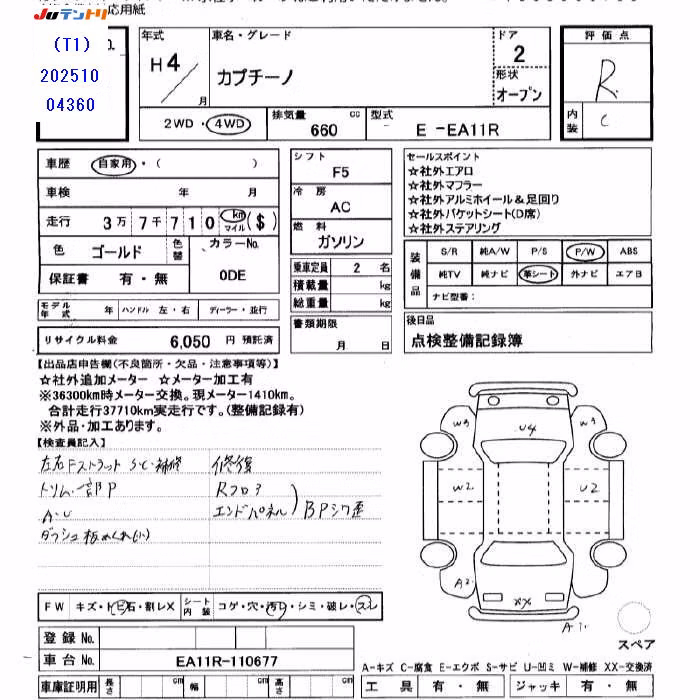 応用紙
JUテントリ
(T1)
202510
04360
No.
年式
H4/月
車名・グレード
カプチーノ
ドア
2
形状
オープン
評価点
R
内装
C
2WD・4WD
排気量 660 cc
型式 E -EA11R
車歴 自家用・( )
車検 年 月
走行 3万7千710 km マイル ($)
色 ゴールド 色替
カラーNo. 0DE
保証書 有・無
モデル年式 年 ハンドル 左・右 ディーラー・並行
リサイクル料金 6,050 円 預託済
シフト
F5
冷房
AC
燃料
ガソリン
乗車定員 2 名
積載量 kg
総重量 kg
書類期限
月 日
セールスポイント
☆社外エアロ
☆社外マフラー
☆社外アルミホイール&足回り
☆社外バケットシート(D席)
☆社外ステアリング
装備品
S/R 純A/W P/S P/W ABS
純TV 純ナビ 革シート 外ナビ エアB
ナビ型番:
後日品
点検整備記録簿
【出品店申告欄(不良箇所・欠品・注意事項等)】
☆社外追加メーター ☆メーター加工有
※36300km時メーター交換。現メーター1410km。
合計走行37710km実走行です。(整備記録有)
※外品・加工あります。
【検査員記入】
左右Fストラット S・C・補修 修復
トリム一部P Rフロア
A・U エンドパネル) BPシワ歪
ダッシュ板めくれ(小)
FW キズ・トビ石・割レX シート内装 コゲ・穴・汚レ・シミ・破レ・スレ
登録 No.
車台 No. EA11R-110677
車庫証明用 長さ cm 幅 cm 高さ cm
W3
U4
W3
W2
U2
A2
XX
A1
スペア
A-キズ C-腐食 E-エクボ S-サビ U-凹ミ W-補修 XX-交換済
工具 有・無 ジャッキ 有・無